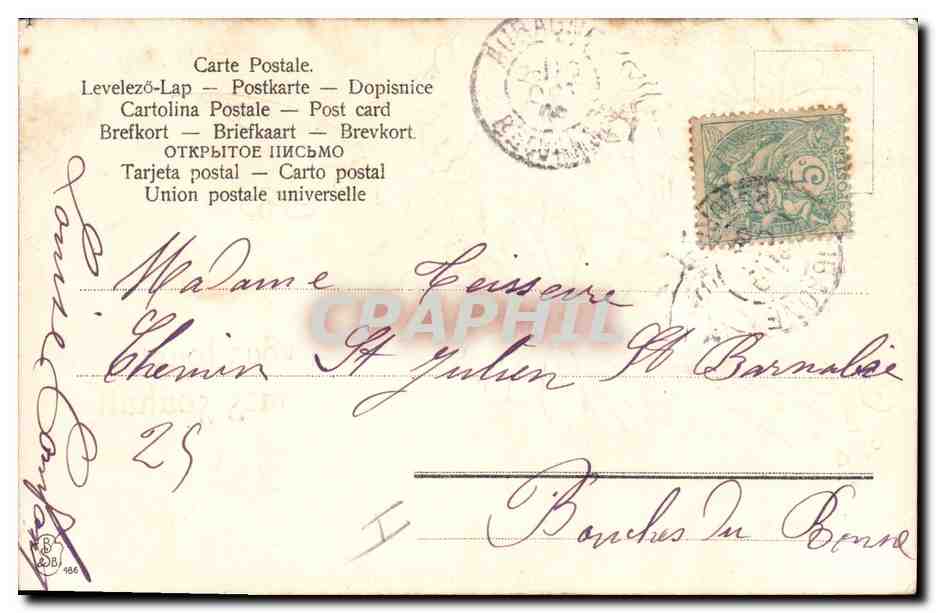 Carte Postale.
Levelező-Lap — Postkarte — Dopisnice
Cartolina Postale — Post card
Brefkort — Briefkaart — Brevkort.
ОТКРЫТОЕ ПИСЬМО
Tarjeta postal — Carto postal
Union postale universelle
AUBAGNE
5
Madame Teisseire
CPARHIL
Chemin St Julien St Barnabé
25
Bouches du Rhone
Louise
B
&B.
486